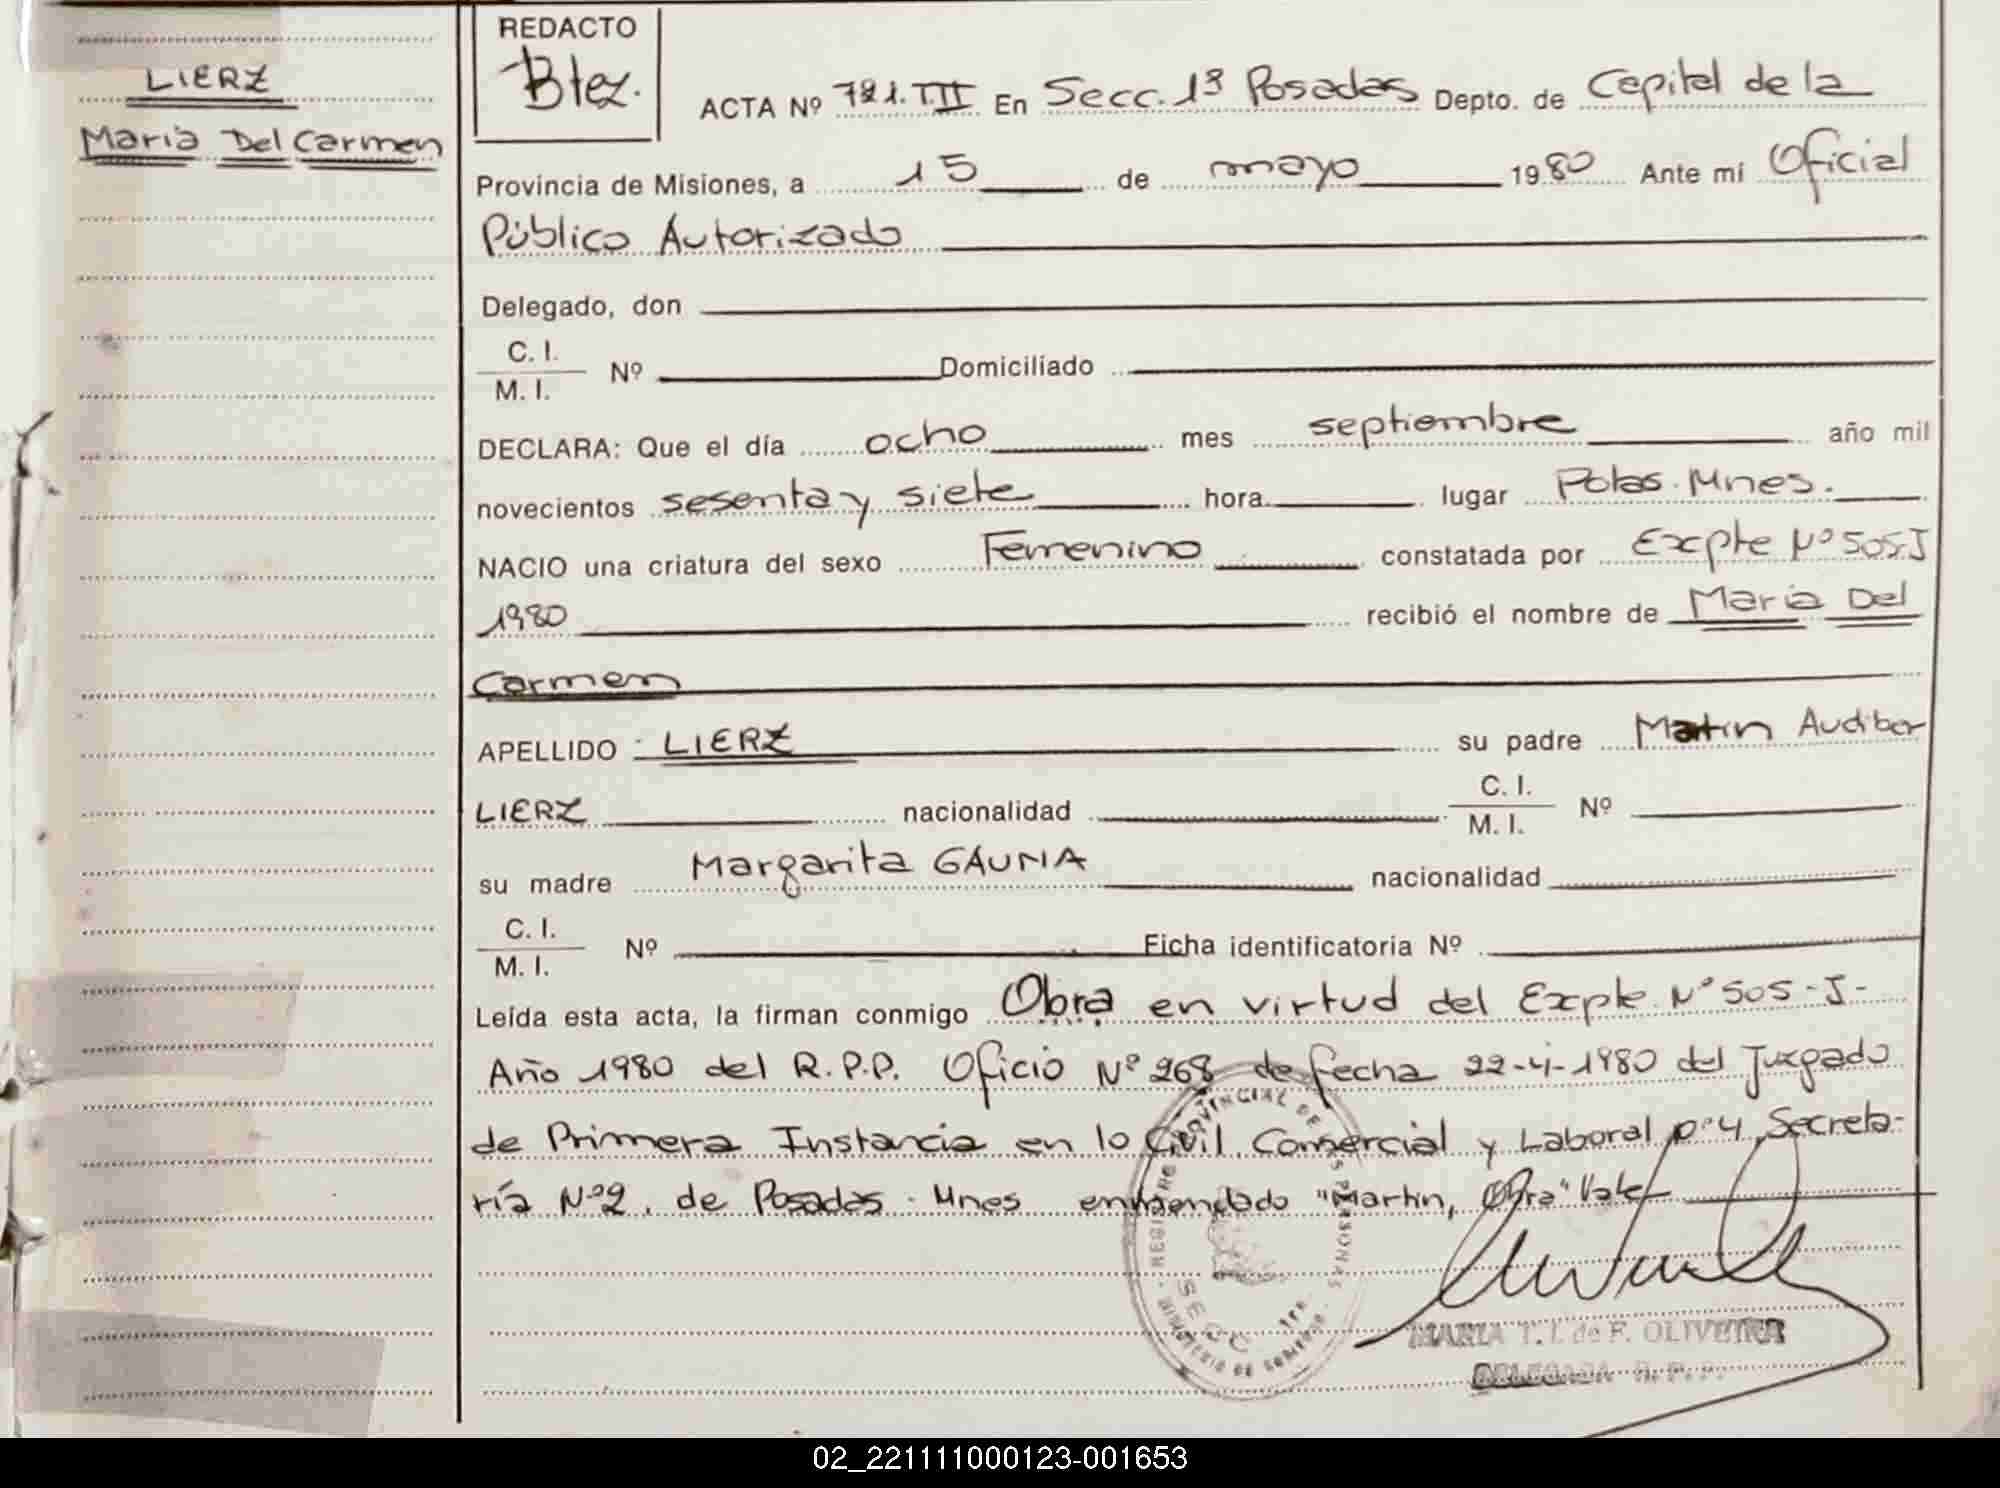 LIERZ
Maria Del Carmen
REDACTO
Btez.
ACTA Nº 721.T.III En Secc. 1ª Posadas Depto. de Capital de la
Provincia de Misiones, a 15 de mayo 1980 Ante mí Oficial
Público Autorizado
Delegado, don
C. I.
M. I. Nº Domiciliado
DECLARA: Que el día ocho mes septiembre año mil
novecientos sesenta y siete hora lugar Pdas. Mnes.
NACIO una criatura del sexo Femenino constatada por Expte Nº 505.J
1980 recibió el nombre de Maria Del
Carmen
APELLIDO LIERZ su padre Martin Audiber
LIERZ nacionalidad C. I. Nº
M. I.
su madre Margarita GAUNA nacionalidad
C. I.
M. I. Nº Ficha identificatoria Nº
Leída esta acta, la firman conmigo Obra en virtud del Expte Nº 505-J-
Año 1980 del R.P.P. Oficio Nº 268 de fecha 22-4-1980 del Juzgado
de Primera Instancia en lo Civil, Comercial y Laboral nº 4, Secreta-
ría Nº 2, de Posadas - Mnes enmendado "Martin, Obra" Vale
REGISTRO PROVINCIAL DE LAS PERSONAS
SECC. 1ra
MINISTERIO DE GOBIERNO
MARIA T. I. de F. OLIVEIRA
DELEGADA R. P. P.
02_221111000123-001653